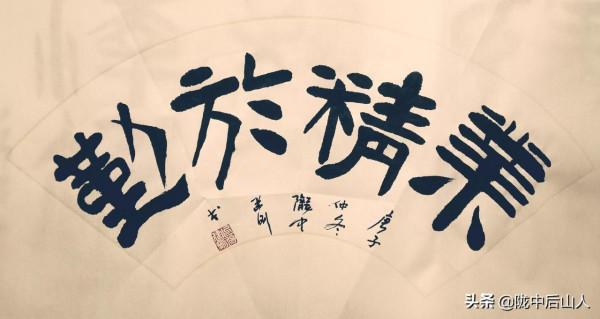 業精於勤
庚子
仲冬
隴中
书
头条 @陇中后山人